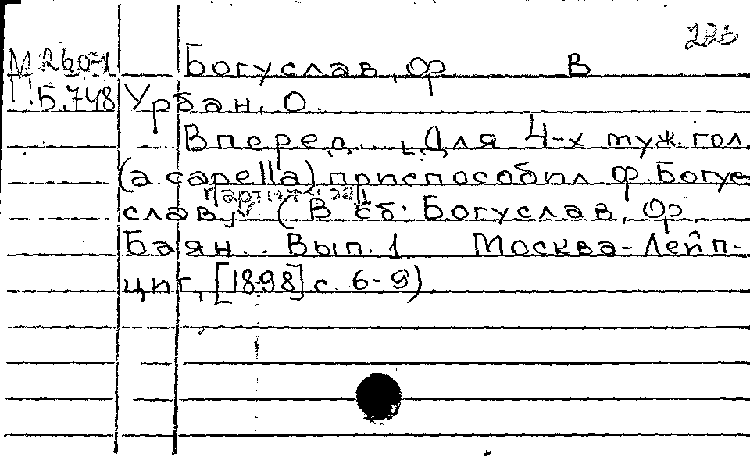 226
М 26071 Богуслав, Ф. В
П.Б.748 Урбан, О.
Вперед. Для 4-х муж. гол.
(a capella) приспособил Ф. Богу-
слав. (В сб. Богуслав, Ф.
Баян. Вып. 1. Москва-Лейп-
циг, [1898] с. 6-9)